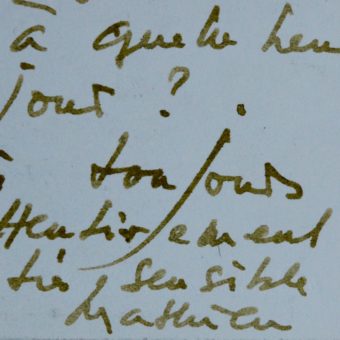 à quelle heu
jour ?
toujours
ttentivement
très sensible
Mathieu